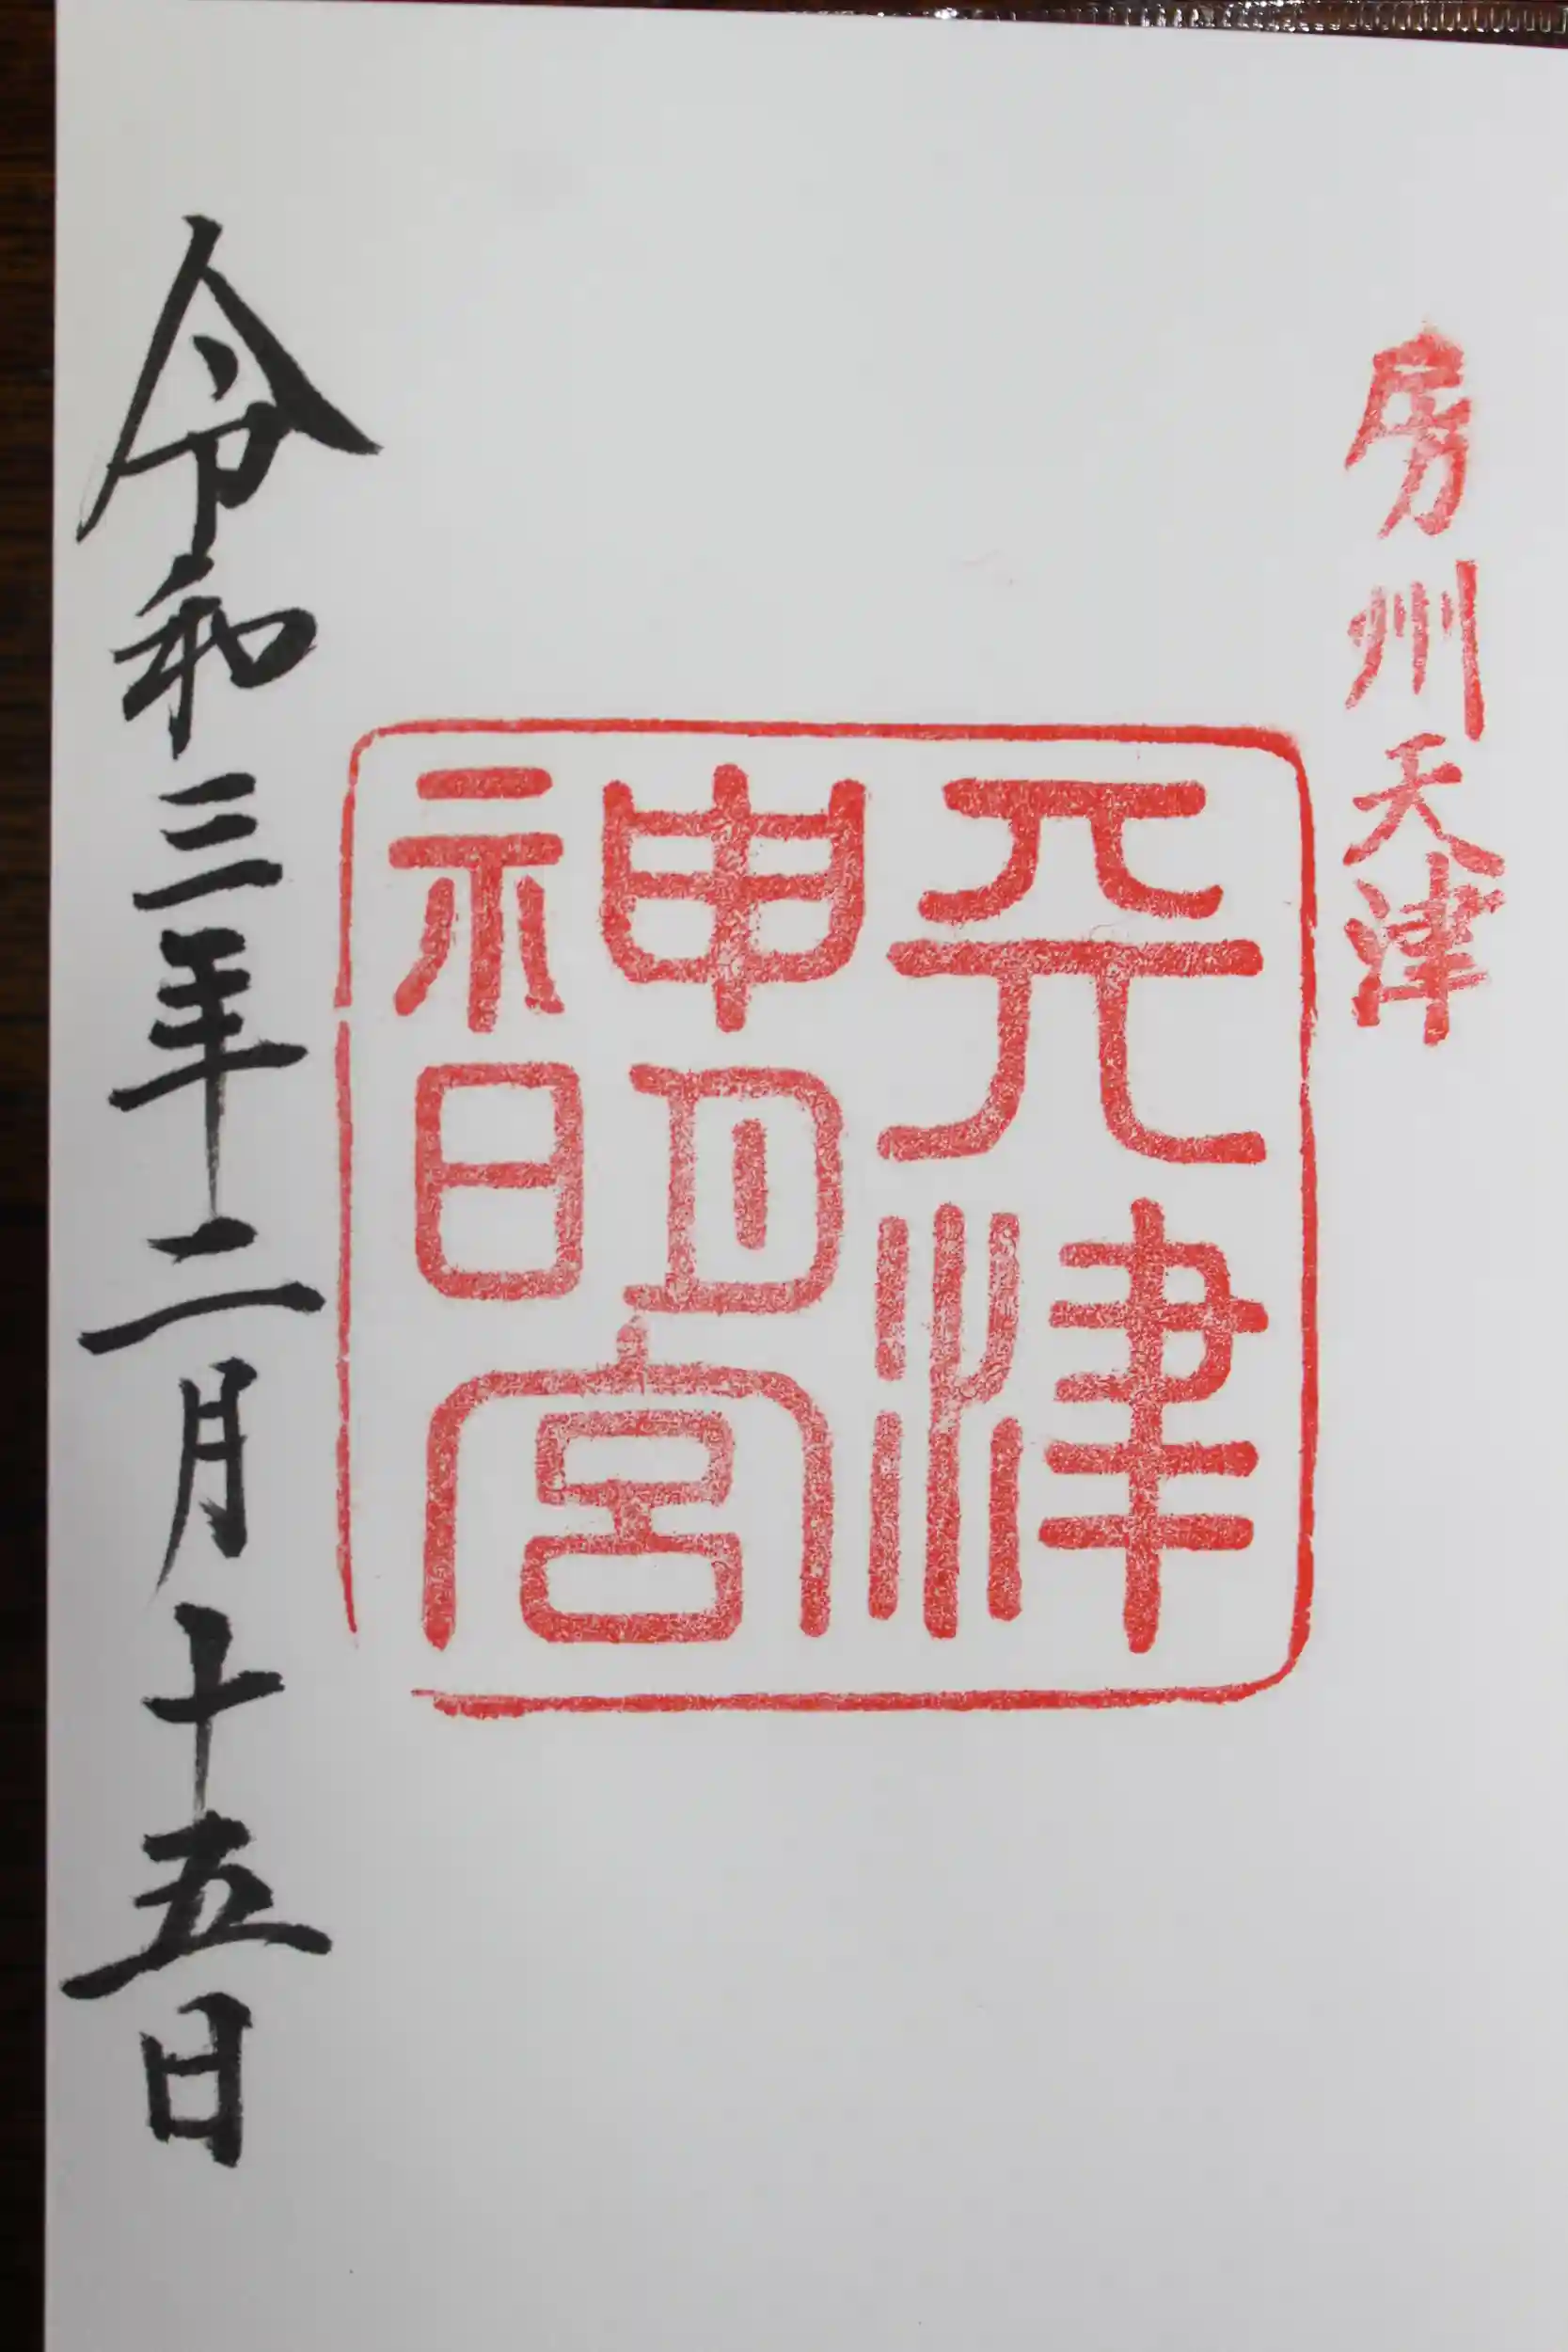 房州天津
天津
神明宮
令和三年二月十五日